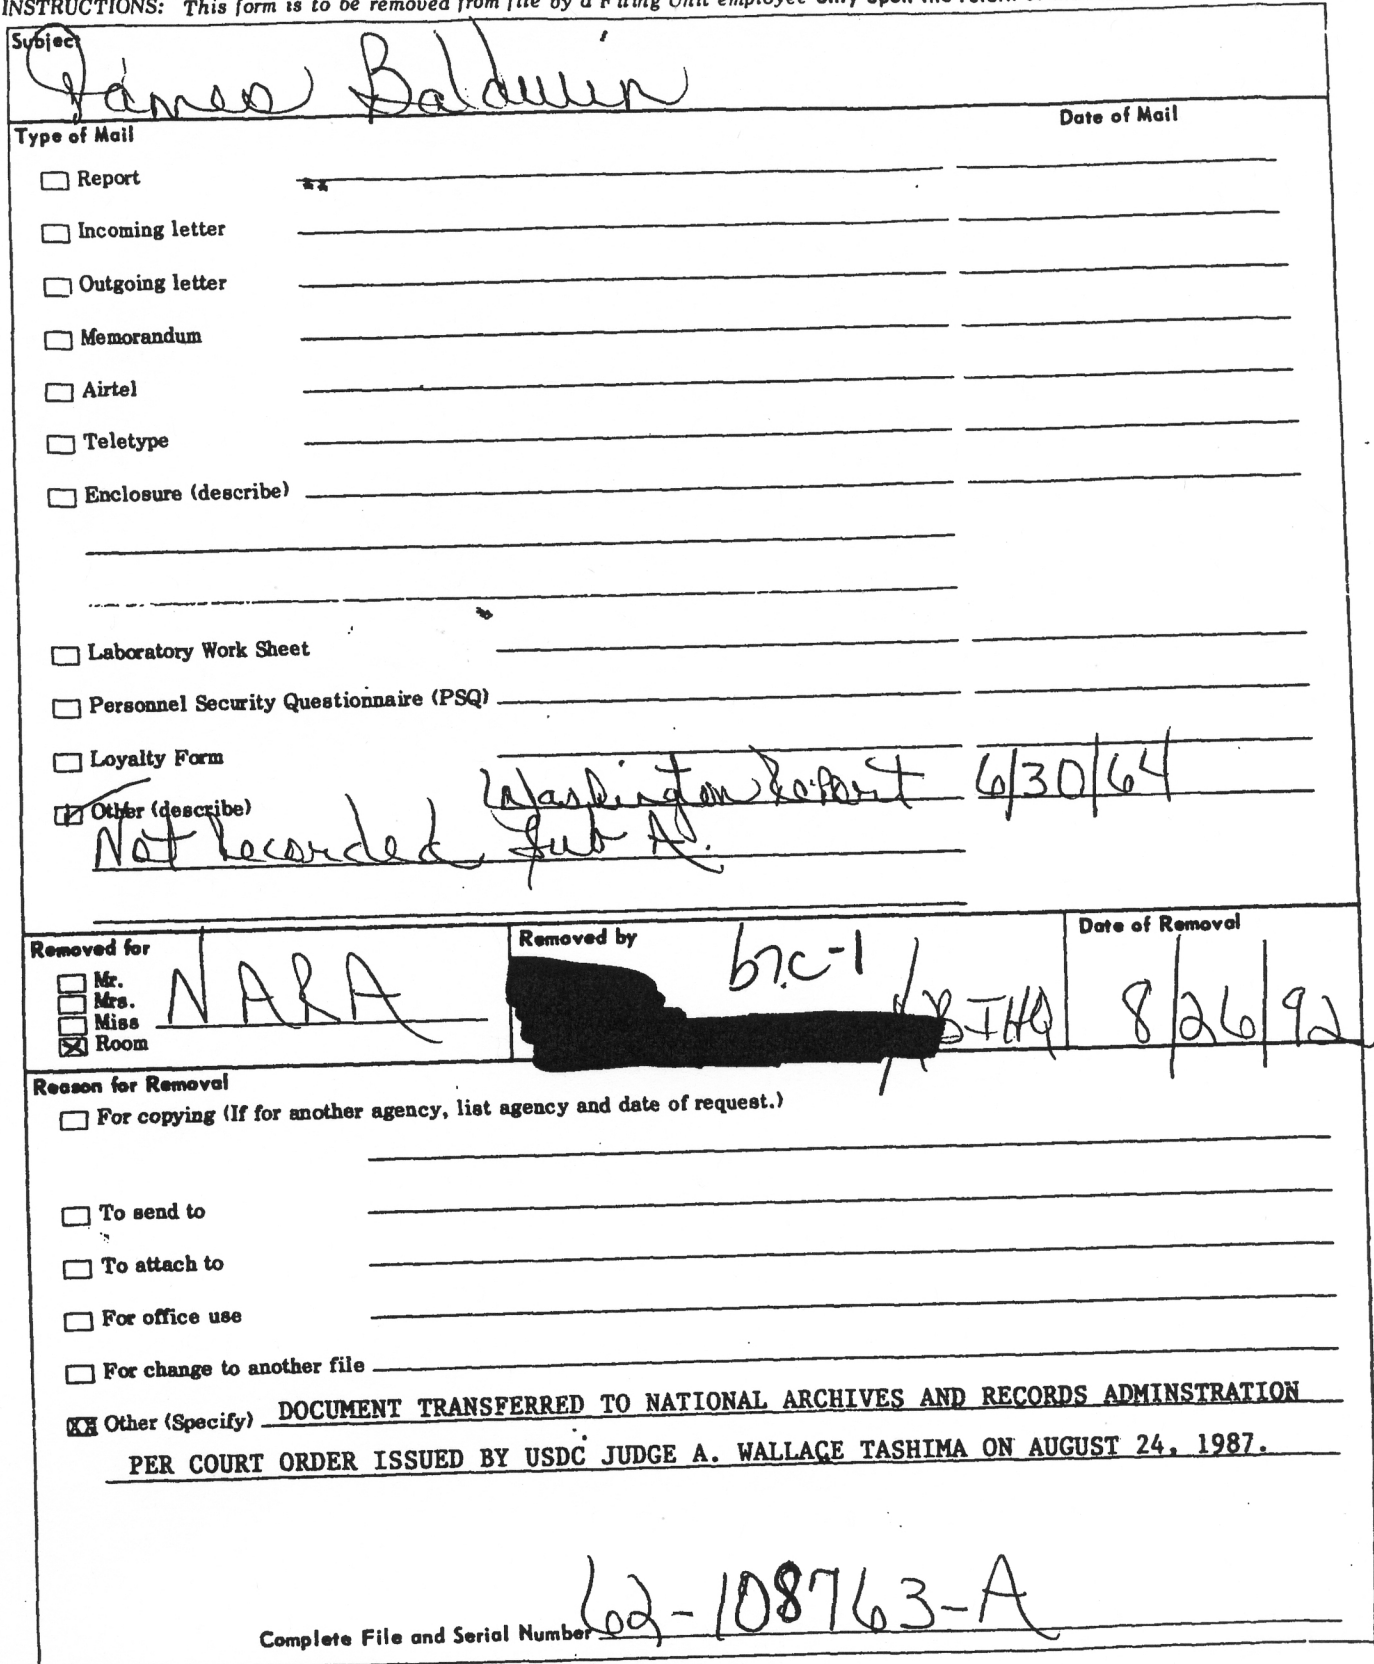 INSTRUCTIONS: This form is to be removed from file by a Filing Unit employee only upon the return
Subject
James Baldwin
Type of Mail Date of Mail
Report **
Incoming letter
Outgoing letter
Memorandum
Airtel
Teletype
Enclosure (describe)
Laboratory Work Sheet
Personnel Security Questionnaire (PSQ)
Loyalty Form
Other (describe) Washington Report 6/30/64
Not Recorded Sub A.
Removed for Removed by Date of Removal
Mr.
Mrs.
Miss
Room
NARA b7C-1 FBIHQ 8/26/92
Reason for Removal
For copying (If for another agency, list agency and date of request.)
To send to
To attach to
For office use
For change to another file
XX Other (Specify) DOCUMENT TRANSFERRED TO NATIONAL ARCHIVES AND RECORDS ADMINSTRATION
PER COURT ORDER ISSUED BY USDC JUDGE A. WALLACE TASHIMA ON AUGUST 24, 1987.
Complete File and Serial Number 62-108763-A